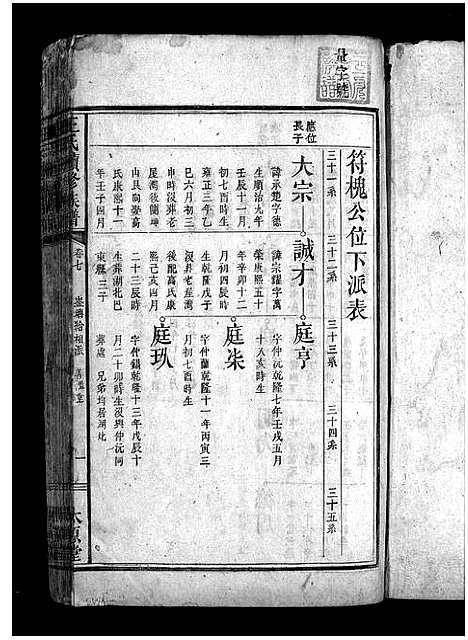 符槐公位下派表
三十一系 三十二系 三十三系 三十四系 三十五系
應位
長子
大宗
諱承楚字德
生順治九年
壬辰十一月
初七酉時生
雍正三年乙
巳六月初三
申時沒葬老
屋灣後側坤
山艮向娶葛
氏康熙十一
年壬子四月
誠才
諱宗耀字萬
榮康熙五十
年辛卯十二
月初四辰時
生乾隆戊子
沒葬老屋灣
後配高氏康
熙己亥四月
二十三辰時
生葬湖北巴
東縣三子
庭亨
字仲沅乾隆七年壬戌五月
十八亥時生
庭柒
字仲蘭乾隆十一年丙寅三
月初七酉時生
庭玖
字仲鎬乾隆十三年戊辰十
月二十卯時生沒與仲沅同
葬處 兄弟均居湖北
王氏續修族譜
卷七
一
太原堂